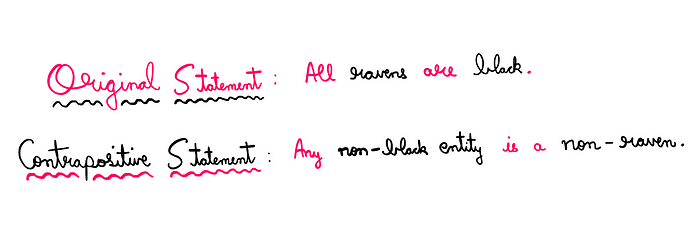 Original Statement : All ravens are black.
Contrapositive Statement : Any non-black entity is a non-raven.